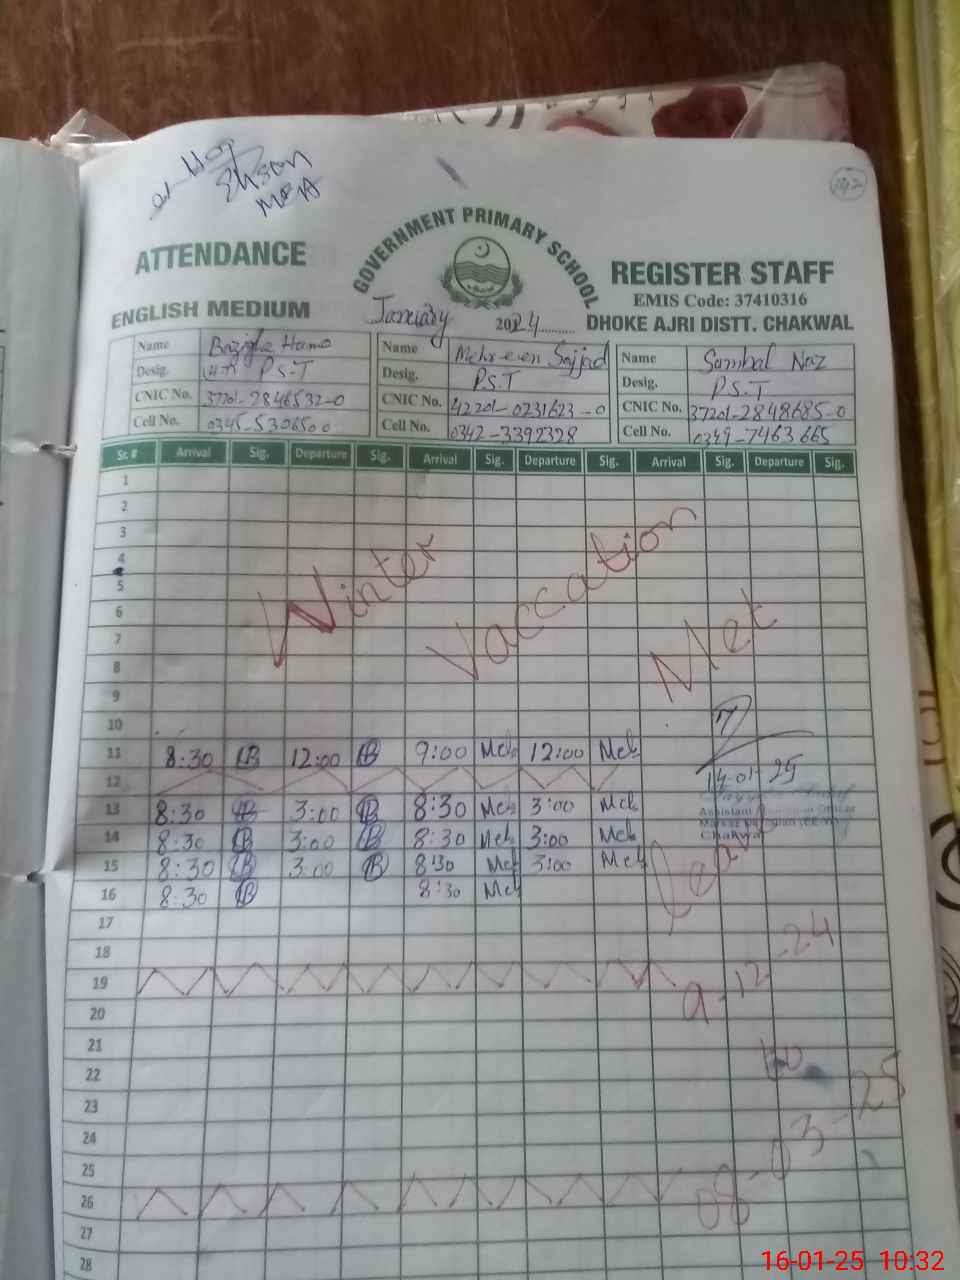 Ehson
MEA
192
GOVERNMENT PRIMARY SCHOOL
ATTENDANCE
REGISTER STAFF
EMIS Code: 37410316
ENGLISH MEDIUM
January 2024
DHOKE AJRI DISTT. CHAKWAL
Name
Name Mehreen Sajjad
Name Sambal Naz
Desig. P.S.T
Desig. P.S.T
Desig. P.S.T
CNIC No. 37201-2846532-0
CNIC No. 42201-0231623-0
CNIC No. 37201-2848685-0
Cell No. 0345-5306500
Cell No. 0342-3392328
Cell No. 0349-7463665
Sr. # Arrival Sig. Departure Sig. Arrival Sig. Departure Sig. Arrival Sig. Departure Sig.
1
2
3
4
5
6
7
8
9
10
Winter Vaccation
Met
11 8:30 B 12:00 B 9:00 Meh 12:00 Meh
14-01-25
12
13 8:30 B 3:00 B 8:30 Meh 3:00 Meh
Assistant Education Officer
14 8:30 B 3:00 B 8:30 Meh 3:00 Meh
Chakwal
15 8:30 B 3:00 B 8:30 Meh 3:00 Meh
16 8:30 B 8:30 Meh
Leav
17
18
19
9-12-24
20
21
22
to
23
24
25
08-03-25
26
27
28
16-01-25 10:32